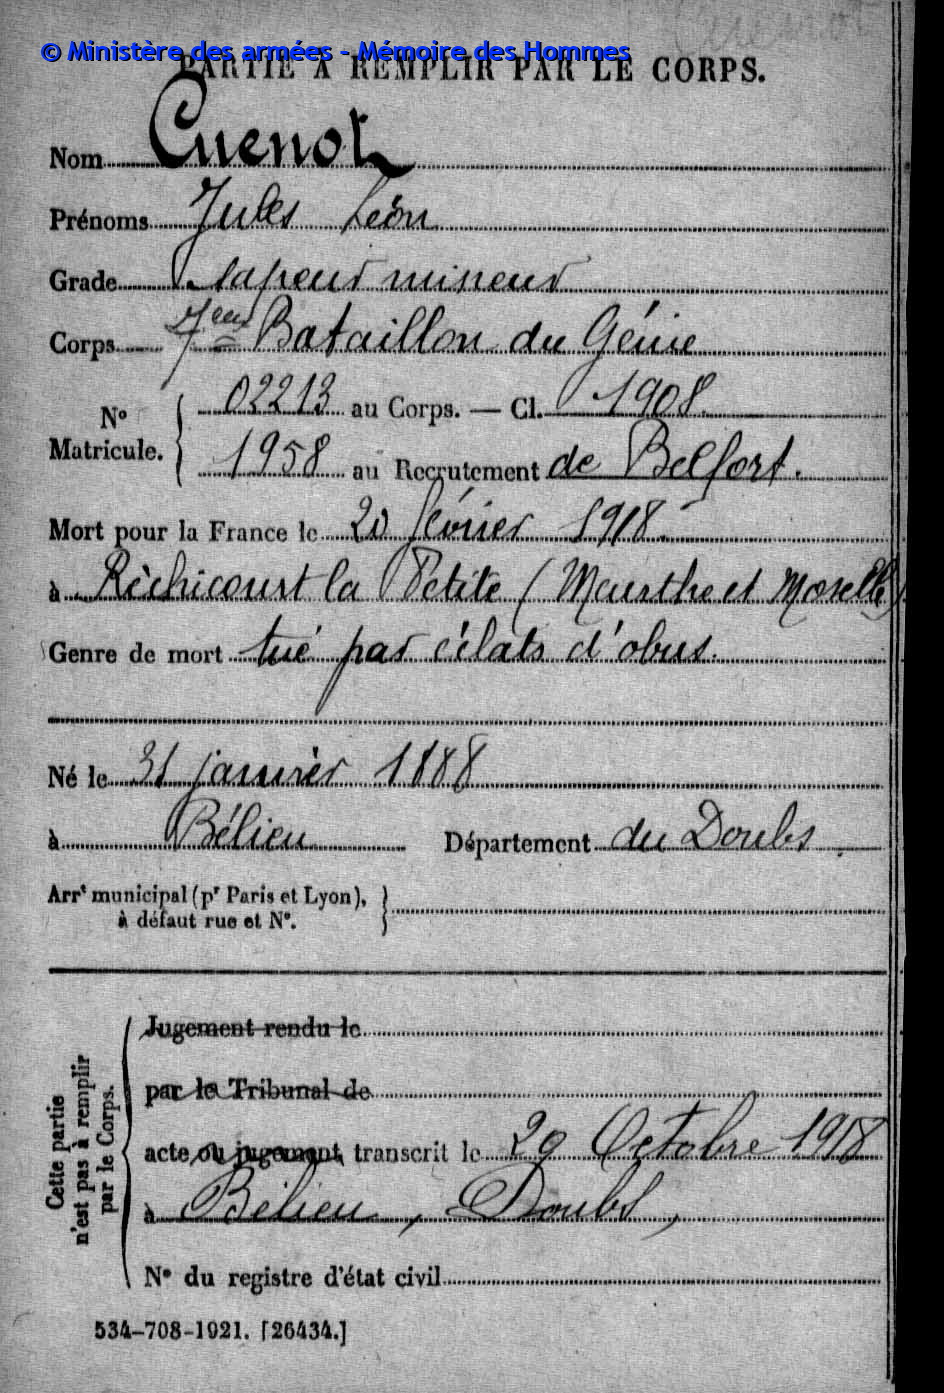 Cuenot
© Ministère des armées - Mémoire des Hommes
PARTIE À REMPLIR PAR LE CORPS.
Nom Cuenot
Prénoms Jules Léon
Grade sapeur mineur
Corps 7eme Bataillon du Génie
N° Matricule. 02213 au Corps. — Cl. 1908
1958 au Recrutement de Belfort.
Mort pour la France le 20 février 1918.
à Réchicourt la Petite (Meurthe et Moselle)
Genre de mort tué par éclats d'obus.
Né le 31 janvier 1888
à Bélieu Département du Doubs.
Arrt municipal (pr Paris et Lyon),
à défaut rue et N°.
Cette partie
n'est pas à remplir
par le Corps.
Jugement rendu le
par le Tribunal de
acte ou jugement transcrit le 29 Octobre 1918
à Bélieu, Doubs,
N° du registre d'état civil
534-708-1921. [26434.]